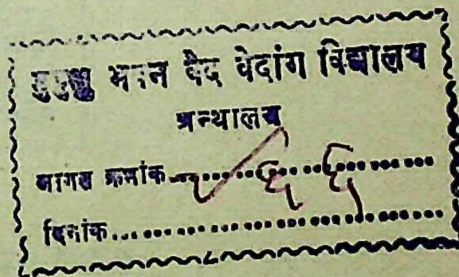 मुमुक्षु भवन वेद वेदांग विद्यालय
ग्रन्थालय
आगत क्रमांक......१६६......
दिनांक......